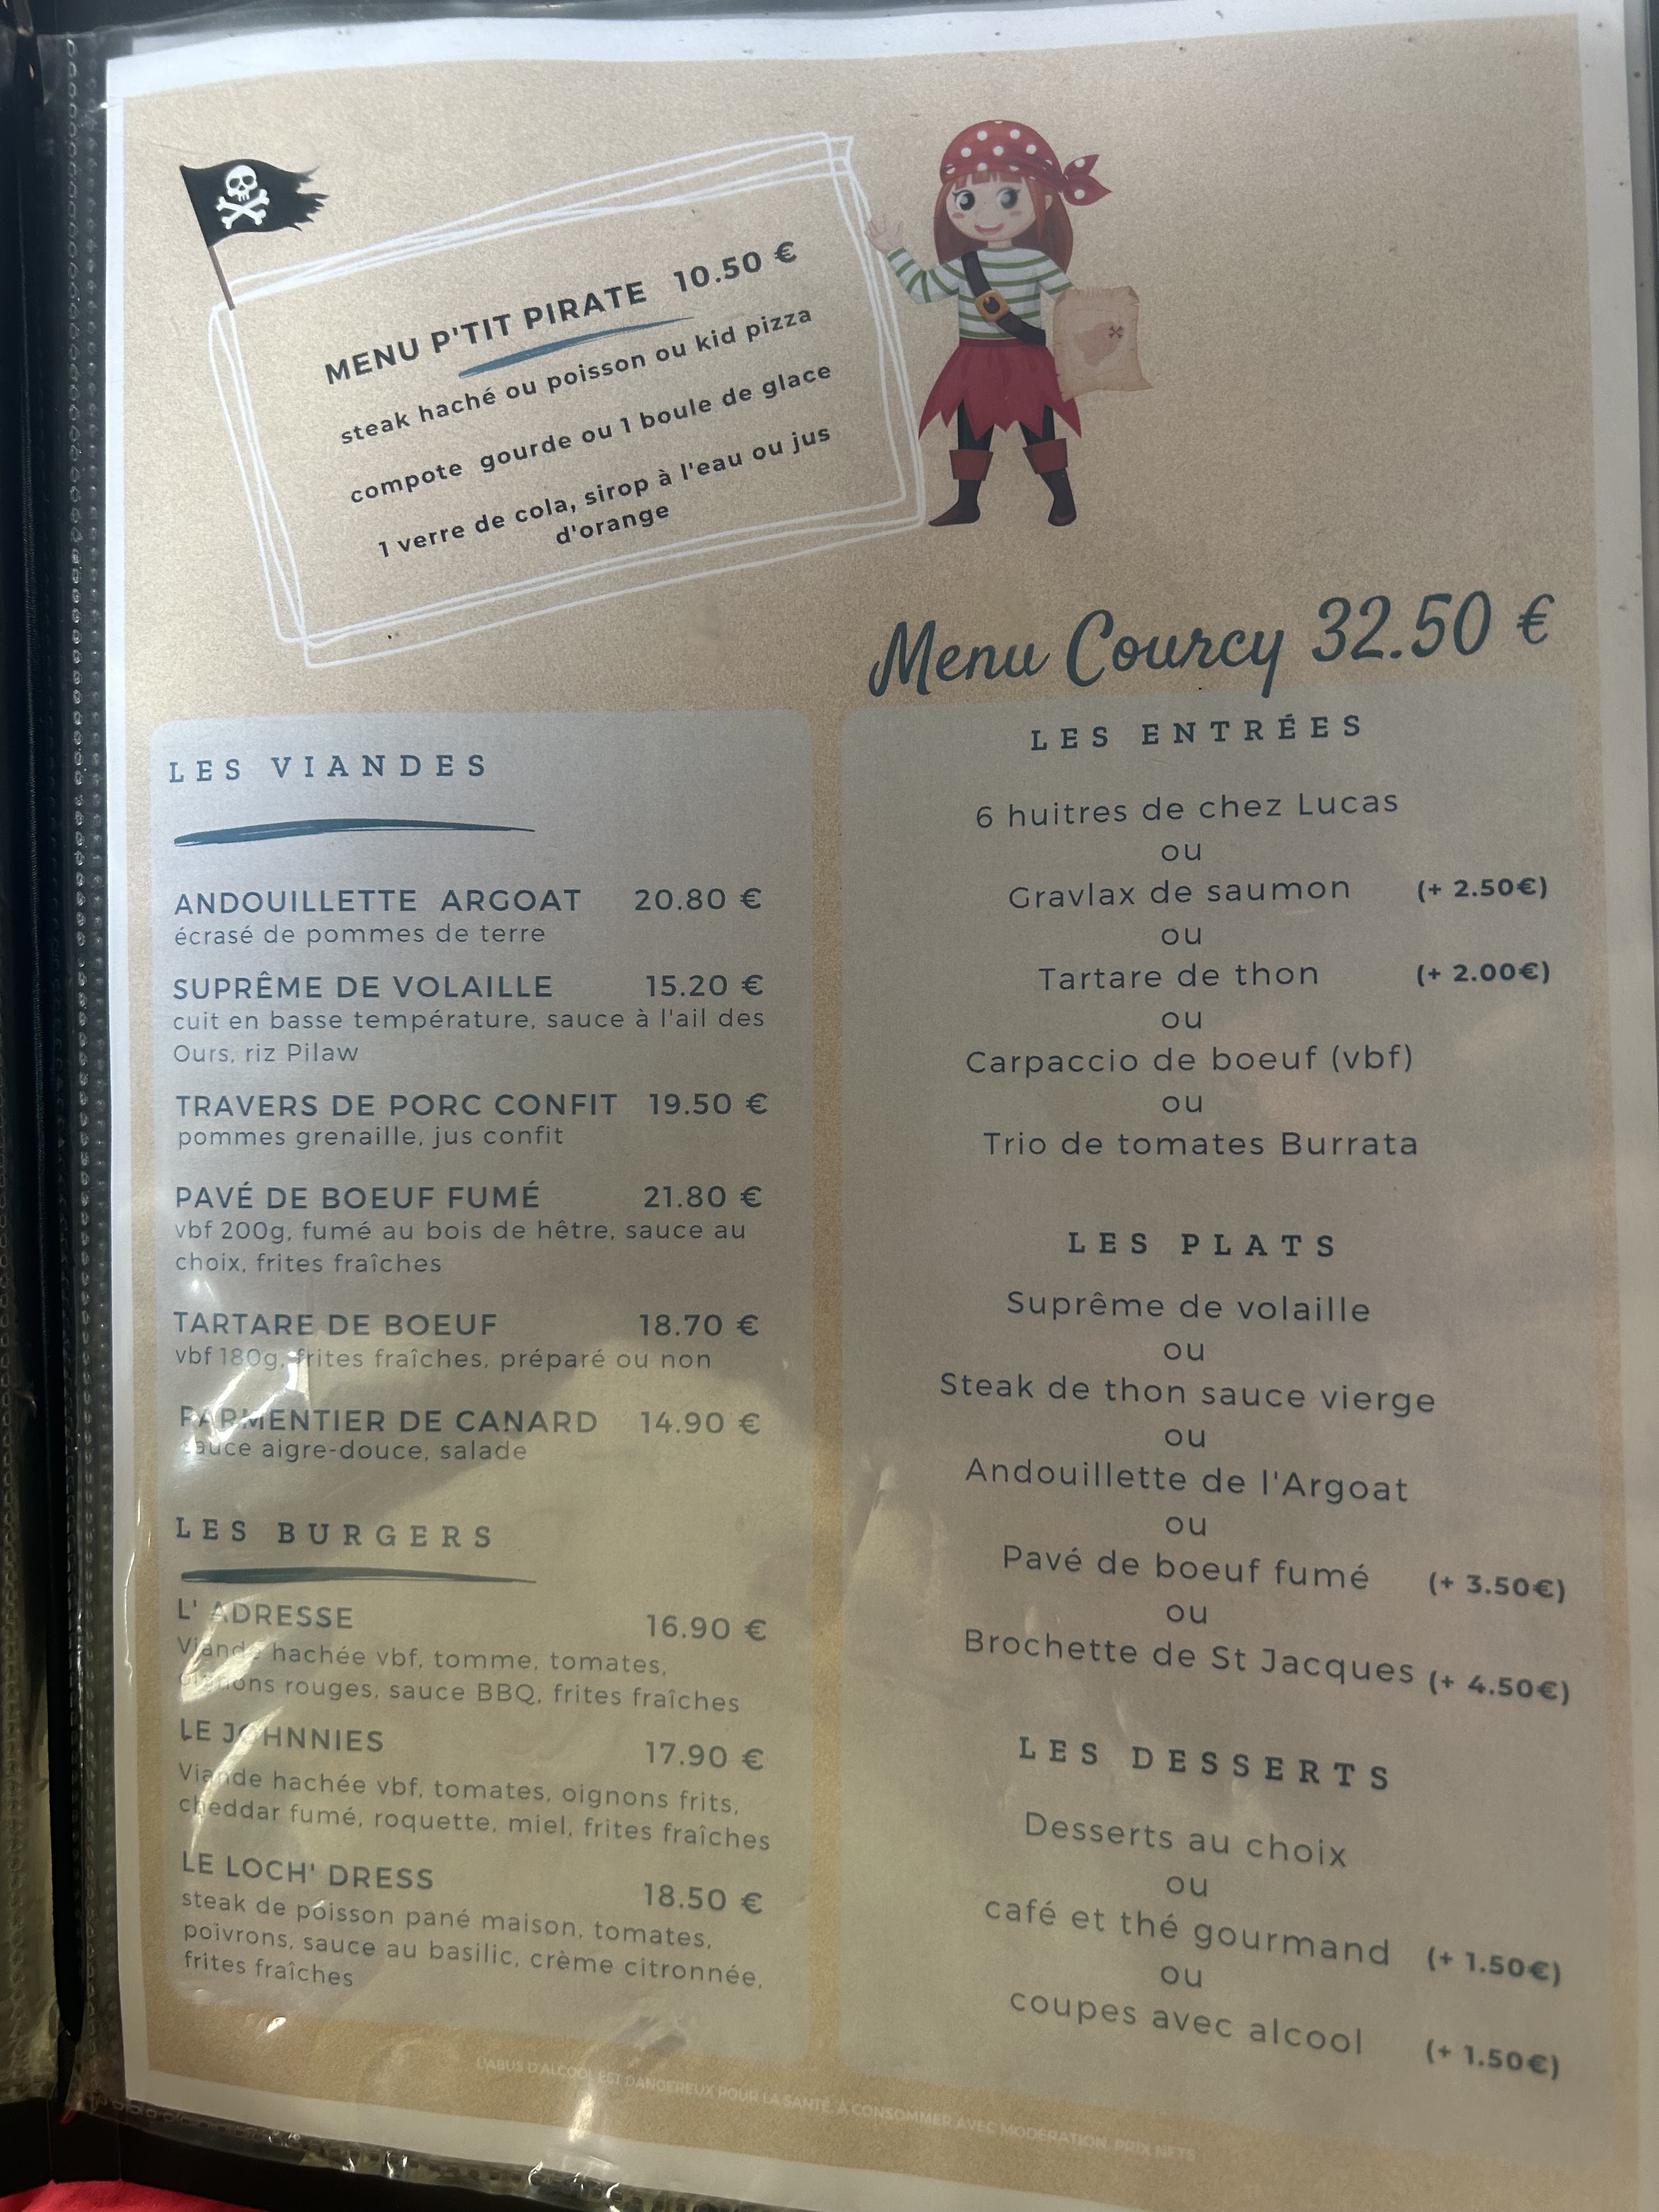 MENU P'TIT PIRATE 10.50 €
steak haché ou poisson ou kid pizza
compote gourde ou 1 boule de glace
1 verre de cola, sirop à l'eau ou jus
d'orange
Menu Courcy 32.50 €
LES VIANDES
ANDOUILLETTE ARGOAT 20.80 €
écrasé de pommes de terre
SUPRÊME DE VOLAILLE 15.20 €
cuit en basse température, sauce à l'ail des
Ours, riz Pilaw
TRAVERS DE PORC CONFIT 19.50 €
pommes grenaille, jus confit
PAVÉ DE BOEUF FUMÉ 21.80 €
vbf 200g, fumé au bois de hêtre, sauce au
choix, frites fraîches
TARTARE DE BOEUF 18.70 €
vbf 180g, frites fraîches, préparé ou non
PARMENTIER DE CANARD 14.90 €
sauce aigre-douce, salade
LES BURGERS
L' ADRESSE 16.90 €
Viande hachée vbf, tomme, tomates,
oignons rouges, sauce BBQ, frites fraîches
LE JOHNNIES 17.90 €
Viande hachée vbf, tomates, oignons frits,
cheddar fumé, roquette, miel, frites fraîches
LE LOCH' DRESS 18.50 €
steak de poisson pané maison, tomates,
poivrons, sauce au basilic, crème citronnée,
frites fraîches
LES ENTRÉES
6 huitres de chez Lucas
ou
Gravlax de saumon (+ 2.50€)
ou
Tartare de thon (+ 2.00€)
ou
Carpaccio de boeuf (vbf)
ou
Trio de tomates Burrata
LES PLATS
Suprême de volaille
ou
Steak de thon sauce vierge
ou
Andouillette de l'Argoat
ou
Pavé de boeuf fumé (+ 3.50€)
ou
Brochette de St Jacques (+ 4.50€)
LES DESSERTS
Desserts au choix
ou
café et thé gourmand (+ 1.50€)
ou
coupes avec alcool (+ 1.50€)
L'ABUS D'ALCOOL EST DANGEREUX POUR LA SANTÉ, À CONSOMMER AVEC MODÉRATION. PRIX NETS